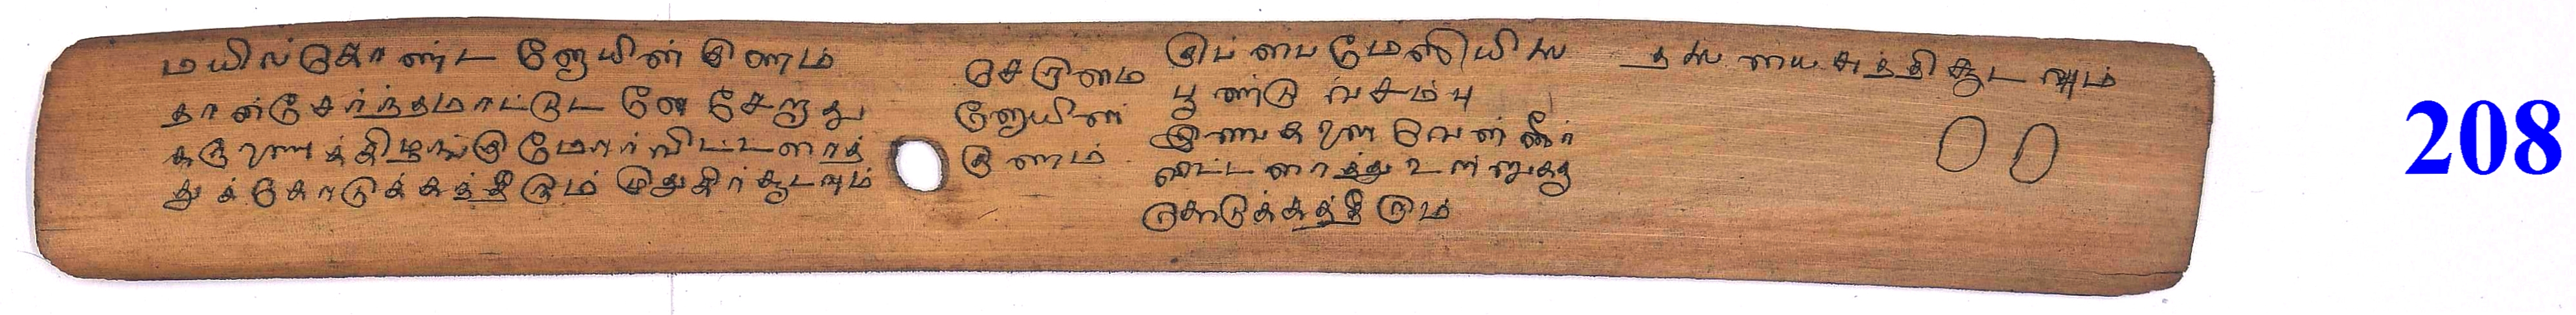 மயில்கொண்ட நோயின் குணம்
தான்சேர்ந்தமாட்டுட னேசேறுது
கருணக்கிழங்கு மோர்விட்டரைத்
துக்கொடுக்கத்தீரும் முதுகிற்சூடவும்
செருமை
நோயின்
குணம்
குப்பைமேனியிலை
பூண்டு வசம்பு
இவைகளை வெண்ணீர்
விட்டரைத்து உள்ளுக்கு
கொடுக்கத்தீரும்
தலையைசுத்திசூடவும்
208